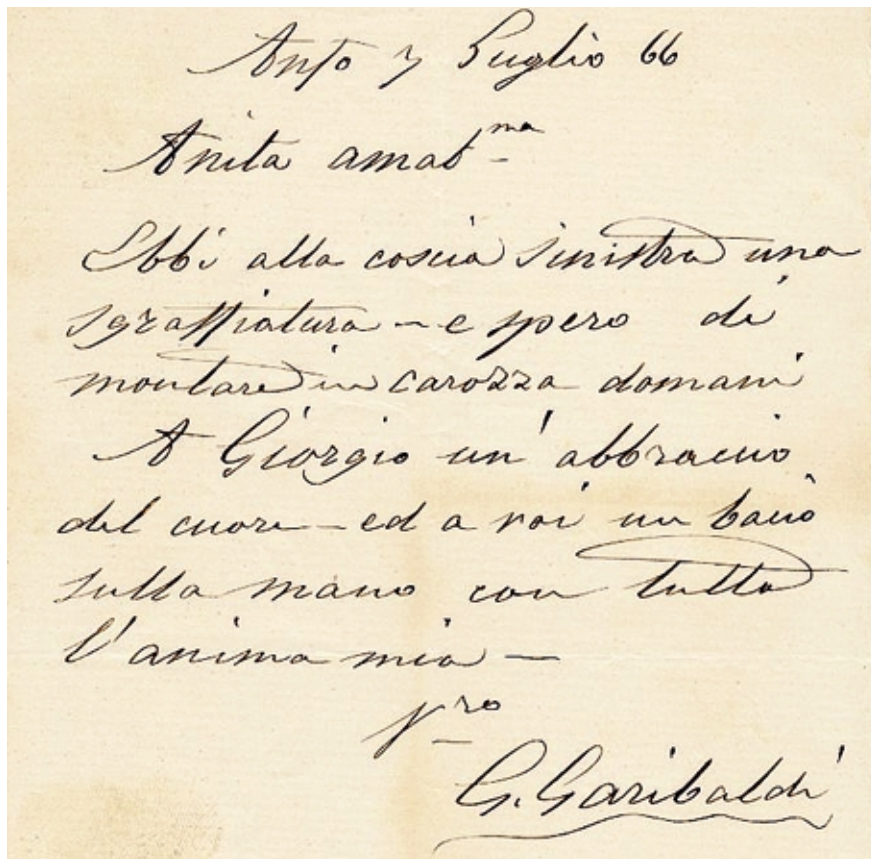 Anfo 7 Luglio 66
Anita amabma
Ebbi alla coscia sinistra una
sgraffiatura – e spero di
montare in carozza domani
A Giorgio un' abbraccio
del cuore – ed a voi un bacio
sulla mano con tutta
l'anima mia –
Vro
G. Garibaldi